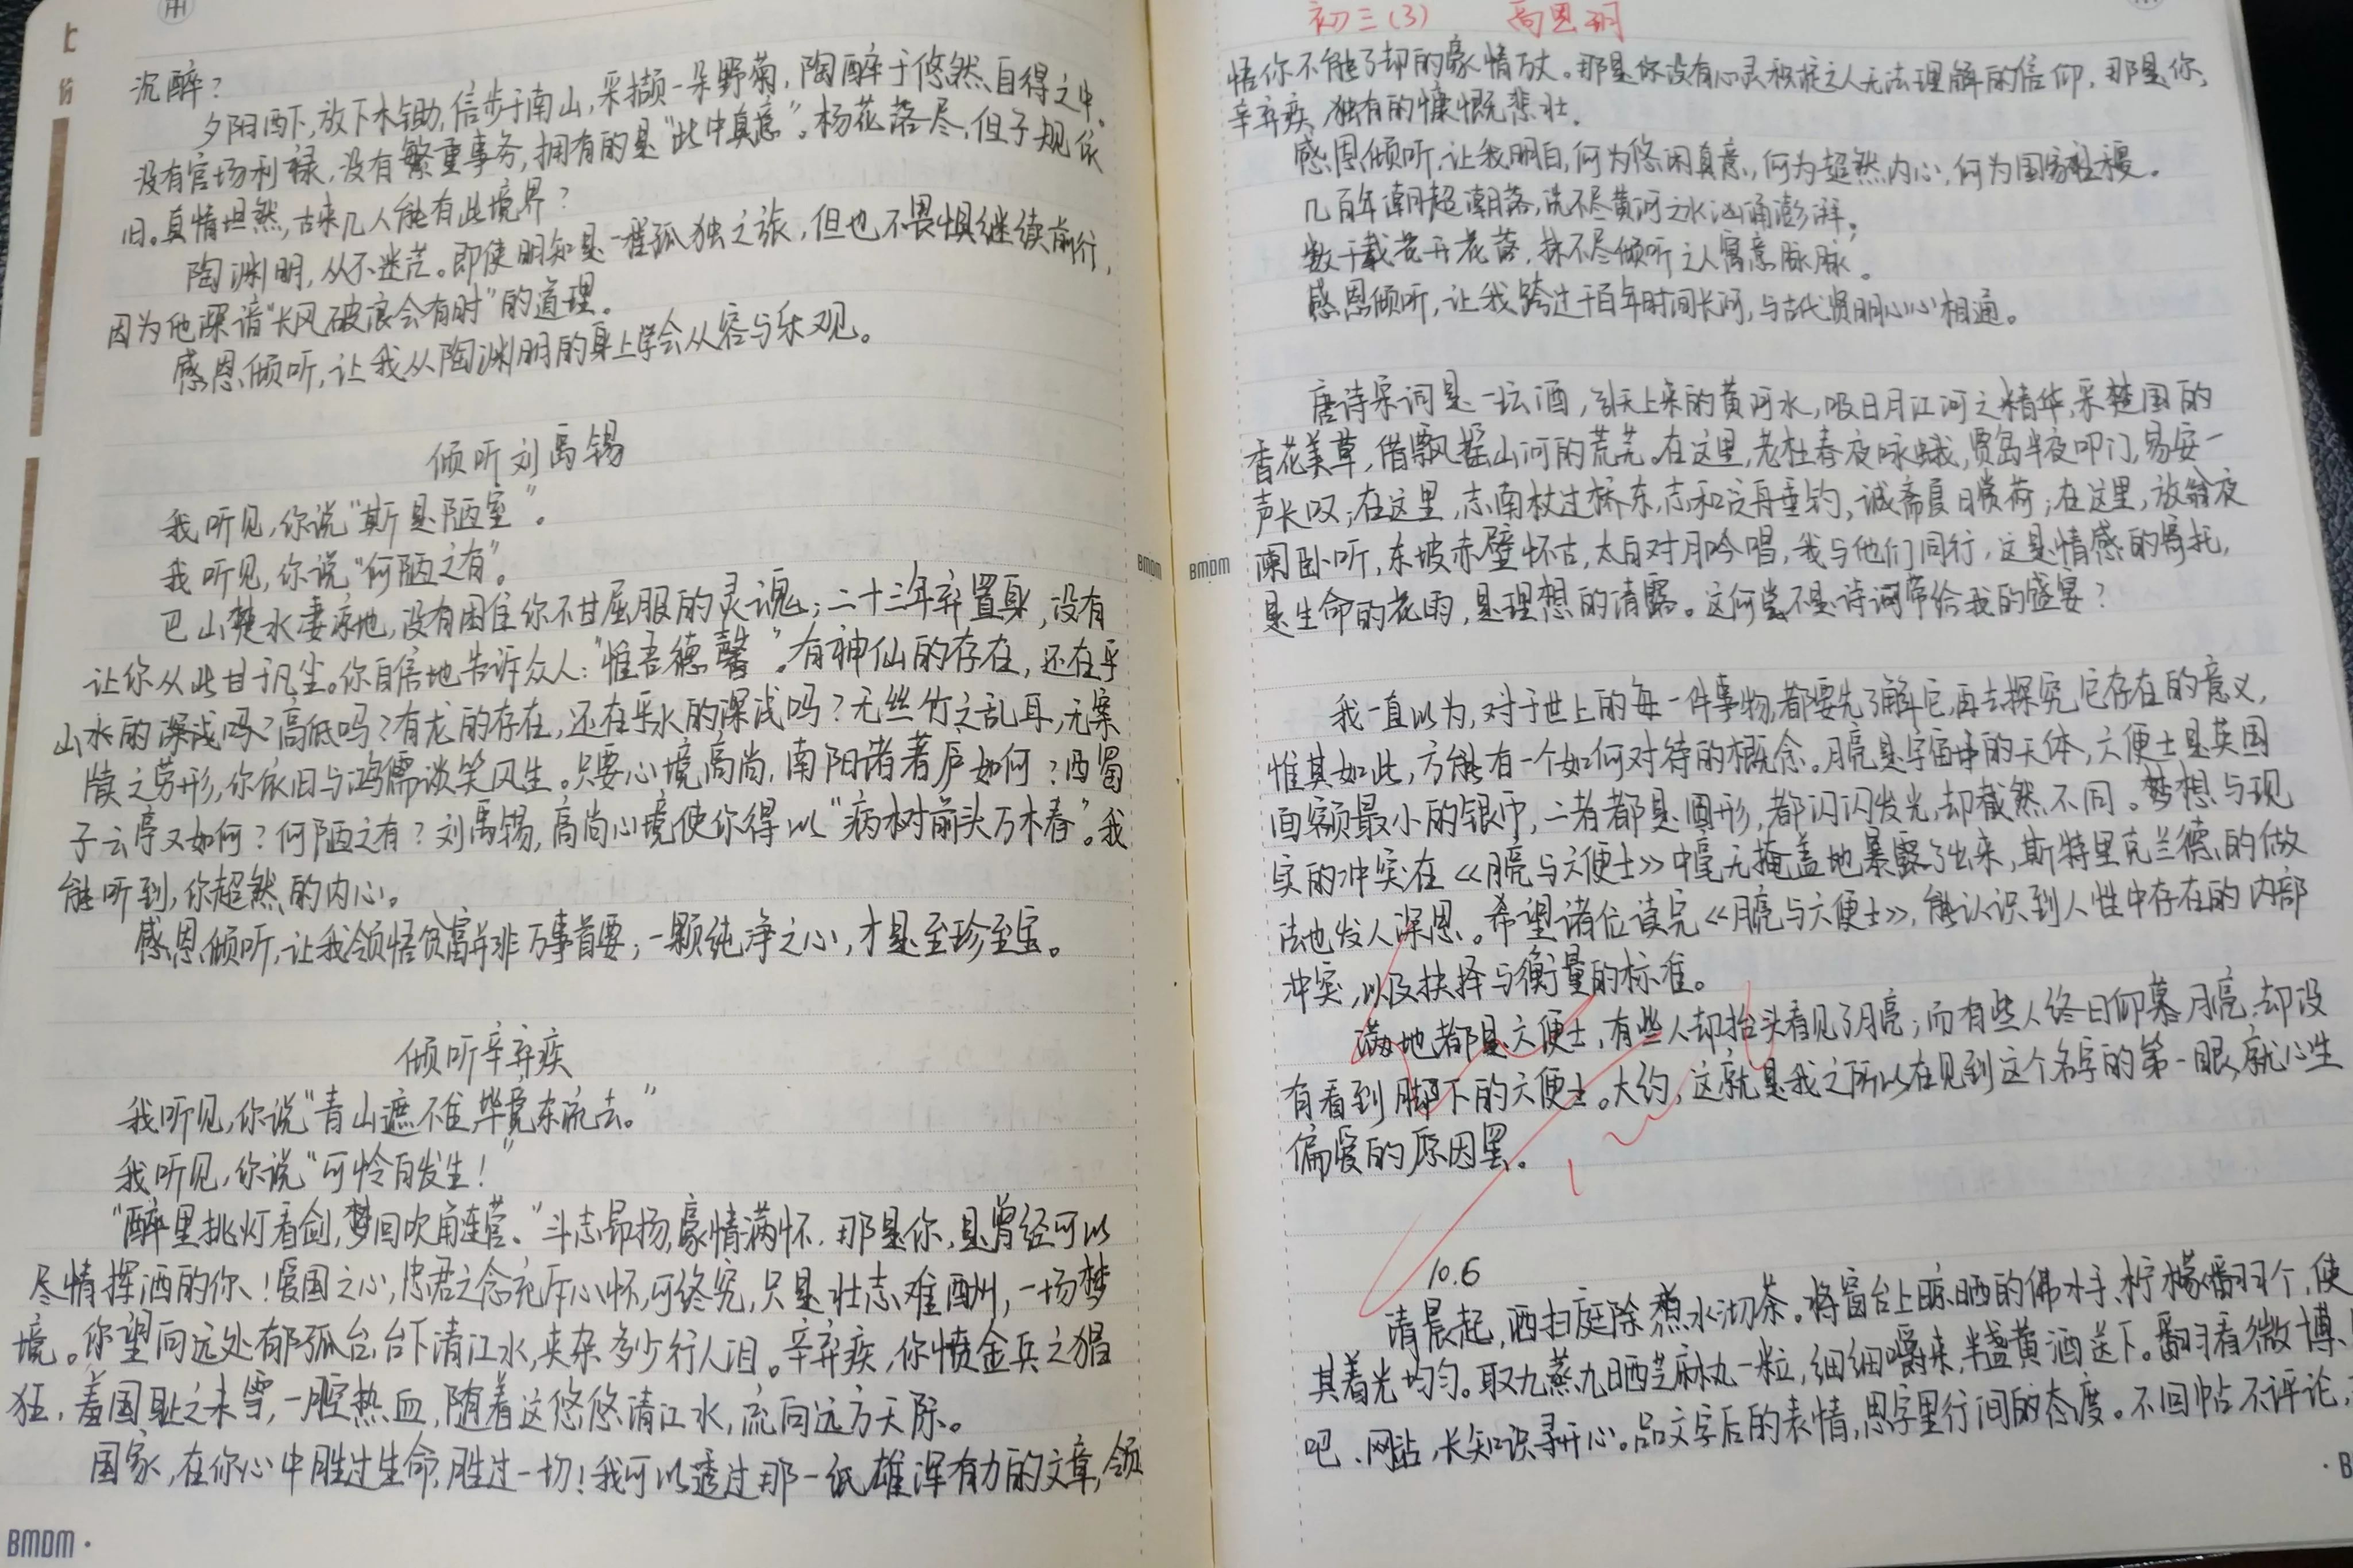 上
沉醉？
夕阳西下,放下木锄,信步于南山,采撷一朵野菊,陶醉于悠然自得之中。
没有官场利禄,没有繁重事务,拥有的是“此中真意”。杨花落尽,但子规依
旧。真情坦然,古来几人能有此境界？
陶渊明,从不迷茫。即使明知是一程孤独之旅,但也不畏惧继续前行,
因为他深谙“长风破浪会有时”的道理。
感恩倾听,让我从陶渊明的身上学会从容与乐观。
倾听刘禹锡
我听见,你说“斯是陋室”。
我听见,你说“何陋之有”。
巴山楚水凄凉地,没有困住你不甘屈服的灵魂；二十三年弃置身,没有
让你从此甘于凡尘。你自信地告诉众人：“惟吾德馨”。有神仙的存在,还在乎
山水的深浅吗？高低吗？有龙的存在,还在乎水的深浅吗？无丝竹之乱耳,无案
牍之劳形,你依旧与鸿儒谈笑风生。只要心境高尚,南阳诸葛庐如何？西蜀
子云亭又如何？何陋之有？刘禹锡,高尚心境使你得以“病树前头万木春”。我
能听到,你超然的内心。
感恩倾听,让我领悟贫富并非万事首要；一颗纯净之心,才是至珍至宝。
倾听辛弃疾
我听见,你说“青山遮不住,毕竟东流去。”
我听见,你说“可怜白发生！”
“醉里挑灯看剑,梦回吹角连营。”斗志昂扬,豪情满怀.那是你,是曾经可以
尽情挥洒的你！爱国之心,忠君之念充斥心怀,可终究,只是壮志难酬,一场梦
境。你望向远处有郁孤台,台下清江水,夹杂多少行人泪。辛弃疾,你愤金兵之猖
狂,羞国耻之未雪,一腔热血,随着这悠悠清江水,流向远方天际。
国家,在你心中胜过生命,胜过一切！我可以透过那一纸雄浑有力的文章,领
BMDM
BMDM
BMDM
初三(3)
悟你不能了却的豪情万丈。那是你没有心灵积淀之人无法理解的信仰,那是你,
辛弃疾,独有的慷慨悲壮.
感恩倾听,让我明白,何为悠闲真意,何为超然内心,何为国家社稷。
几百年潮起潮落,洗不尽黄河之水汹涌澎湃。
数千载花开花落,抹不尽倾听之人寓意脉脉。
感恩倾听,让我跨过千百年时间长河,与古代贤明心心相通。
唐诗宋词是一坛酒,引天上来的黄河水,吸日月江河之精华,采楚国的
香花美草,借飘摇山河的荒芜。在这里,老杜春夜咏蛾,贾岛半夜叩门,易安一
声长叹；在这里,志南杖过桥东,志和泛舟垂钓,诚斋夏日赏荷；在这里,放翁夜
阑卧听,东坡赤壁怀古,太白对月吟唱,我与他们同行,这是情感的寄托,
是生命的花雨,是理想的清露。这何尝不是诗词带给我的盛宴？
我一直以为,对于世上的每一件事物,都要先了解它,再去探究它存在的意义,
惟其如此,方能有一个如何对待的概念。月亮是宇宙中的天体,六便士是英国
面额最小的银币,二者都是圆形,都闪闪发光,却截然不同。梦想与现
实的冲突在《月亮与六便士》中毫无掩盖地暴露了出来,斯特里克兰德的做
法也发人深思。希望诸位读完《月亮与六便士》,能认识到人性中存在的内部
冲突,以及抉择与衡量的标准。
满地都是六便士,有些人却抬头看见了月亮；而有些人终日仰慕月亮,却没
有看到脚下的六便士。大约,这就是我之所以在见到这个名字的第一眼,就心生
偏爱的原因罢。
10.6
清晨起,洒扫庭除,煮水沏茶。将窗台上晾晒的佛水手、柠檬翻个,使
其着光均匀。取九蒸九晒芝麻丸一粒,细细嚼来,半盏黄酒送下。翻看微博、
吧、网站,长知识寻开心。品文字后的表情,思字里行间的态度。不回帖不评论,